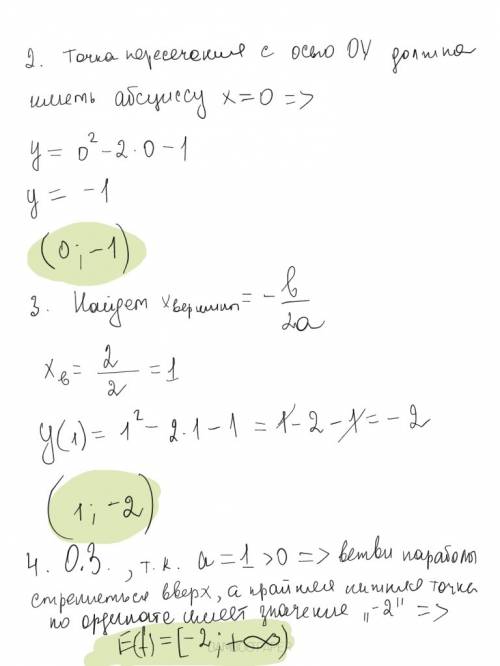 2. Точка пересечения с осью OY должна
иметь абсциссу x=0 =>
y = 0² - 2·0 - 1
y = -1
(0; -1)
3. Найдем x вершин = - b/2a
xв = 2/2 = 1
y(1) = 1² - 2·1 - 1 = 1 - 2 - 1 = -2
(1; -2)
4. О.З., т.к. a = 1 > 0 => ветви параболы
стремиться вверх, а крайняя нижняя точка
по ординате имеет значение „-2" =>
E(f) = [-2; +∞)